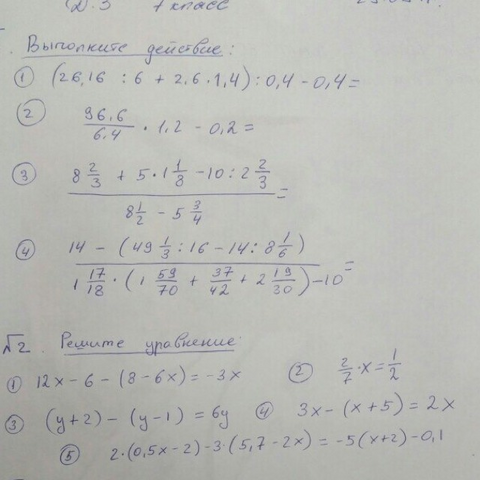 Д.З 7 класс
Выполните действие:
① (26,16 : 6 + 2,6 · 1,4) : 0,4 - 0,4 =
② 96,6/6,4 · 1,2 - 0,2 =
③ (8 2/3 + 5 · 1 1/8 - 10 : 2 2/3) / (8 1/2 - 5 3/4) =
④ (14 - (49 1/3 : 16 - 14 : 8 1/6)) / (1 17/18 · (1 59/70 + 37/42 + 2 19/30) - 10) =
№2. Решите уравнение:
① 12x - 6 - (8 - 6x) = -3x
② 2/7 · x = 1/2
③ (y + 2) - (y - 1) = 6y
④ 3x - (x + 5) = 2x
⑤ 2 · (0,5x - 2) - 3 · (5,7 - 2x) = -5(x + 2) - 0,1